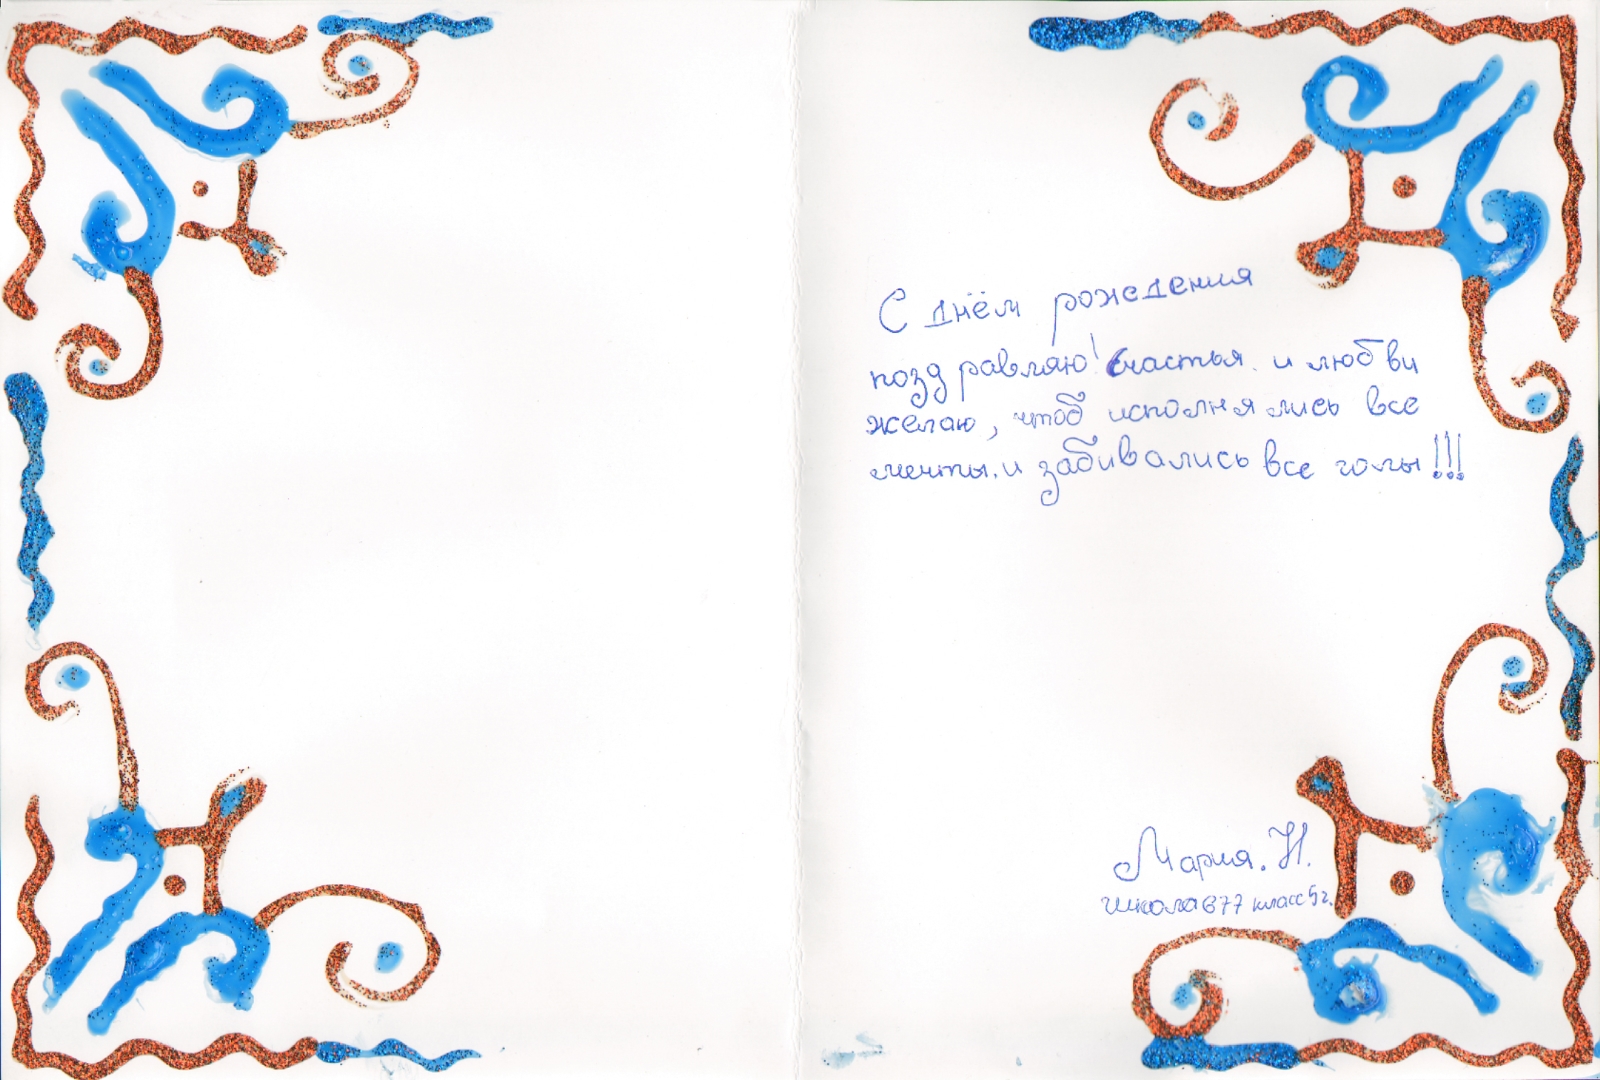 С днём рождения
поздравляю! Счастья. и любви
желаю, чтоб исполнялись все
мечты. и забивались все голы!!!
Мария. Н.
школа 677 класс 5г.